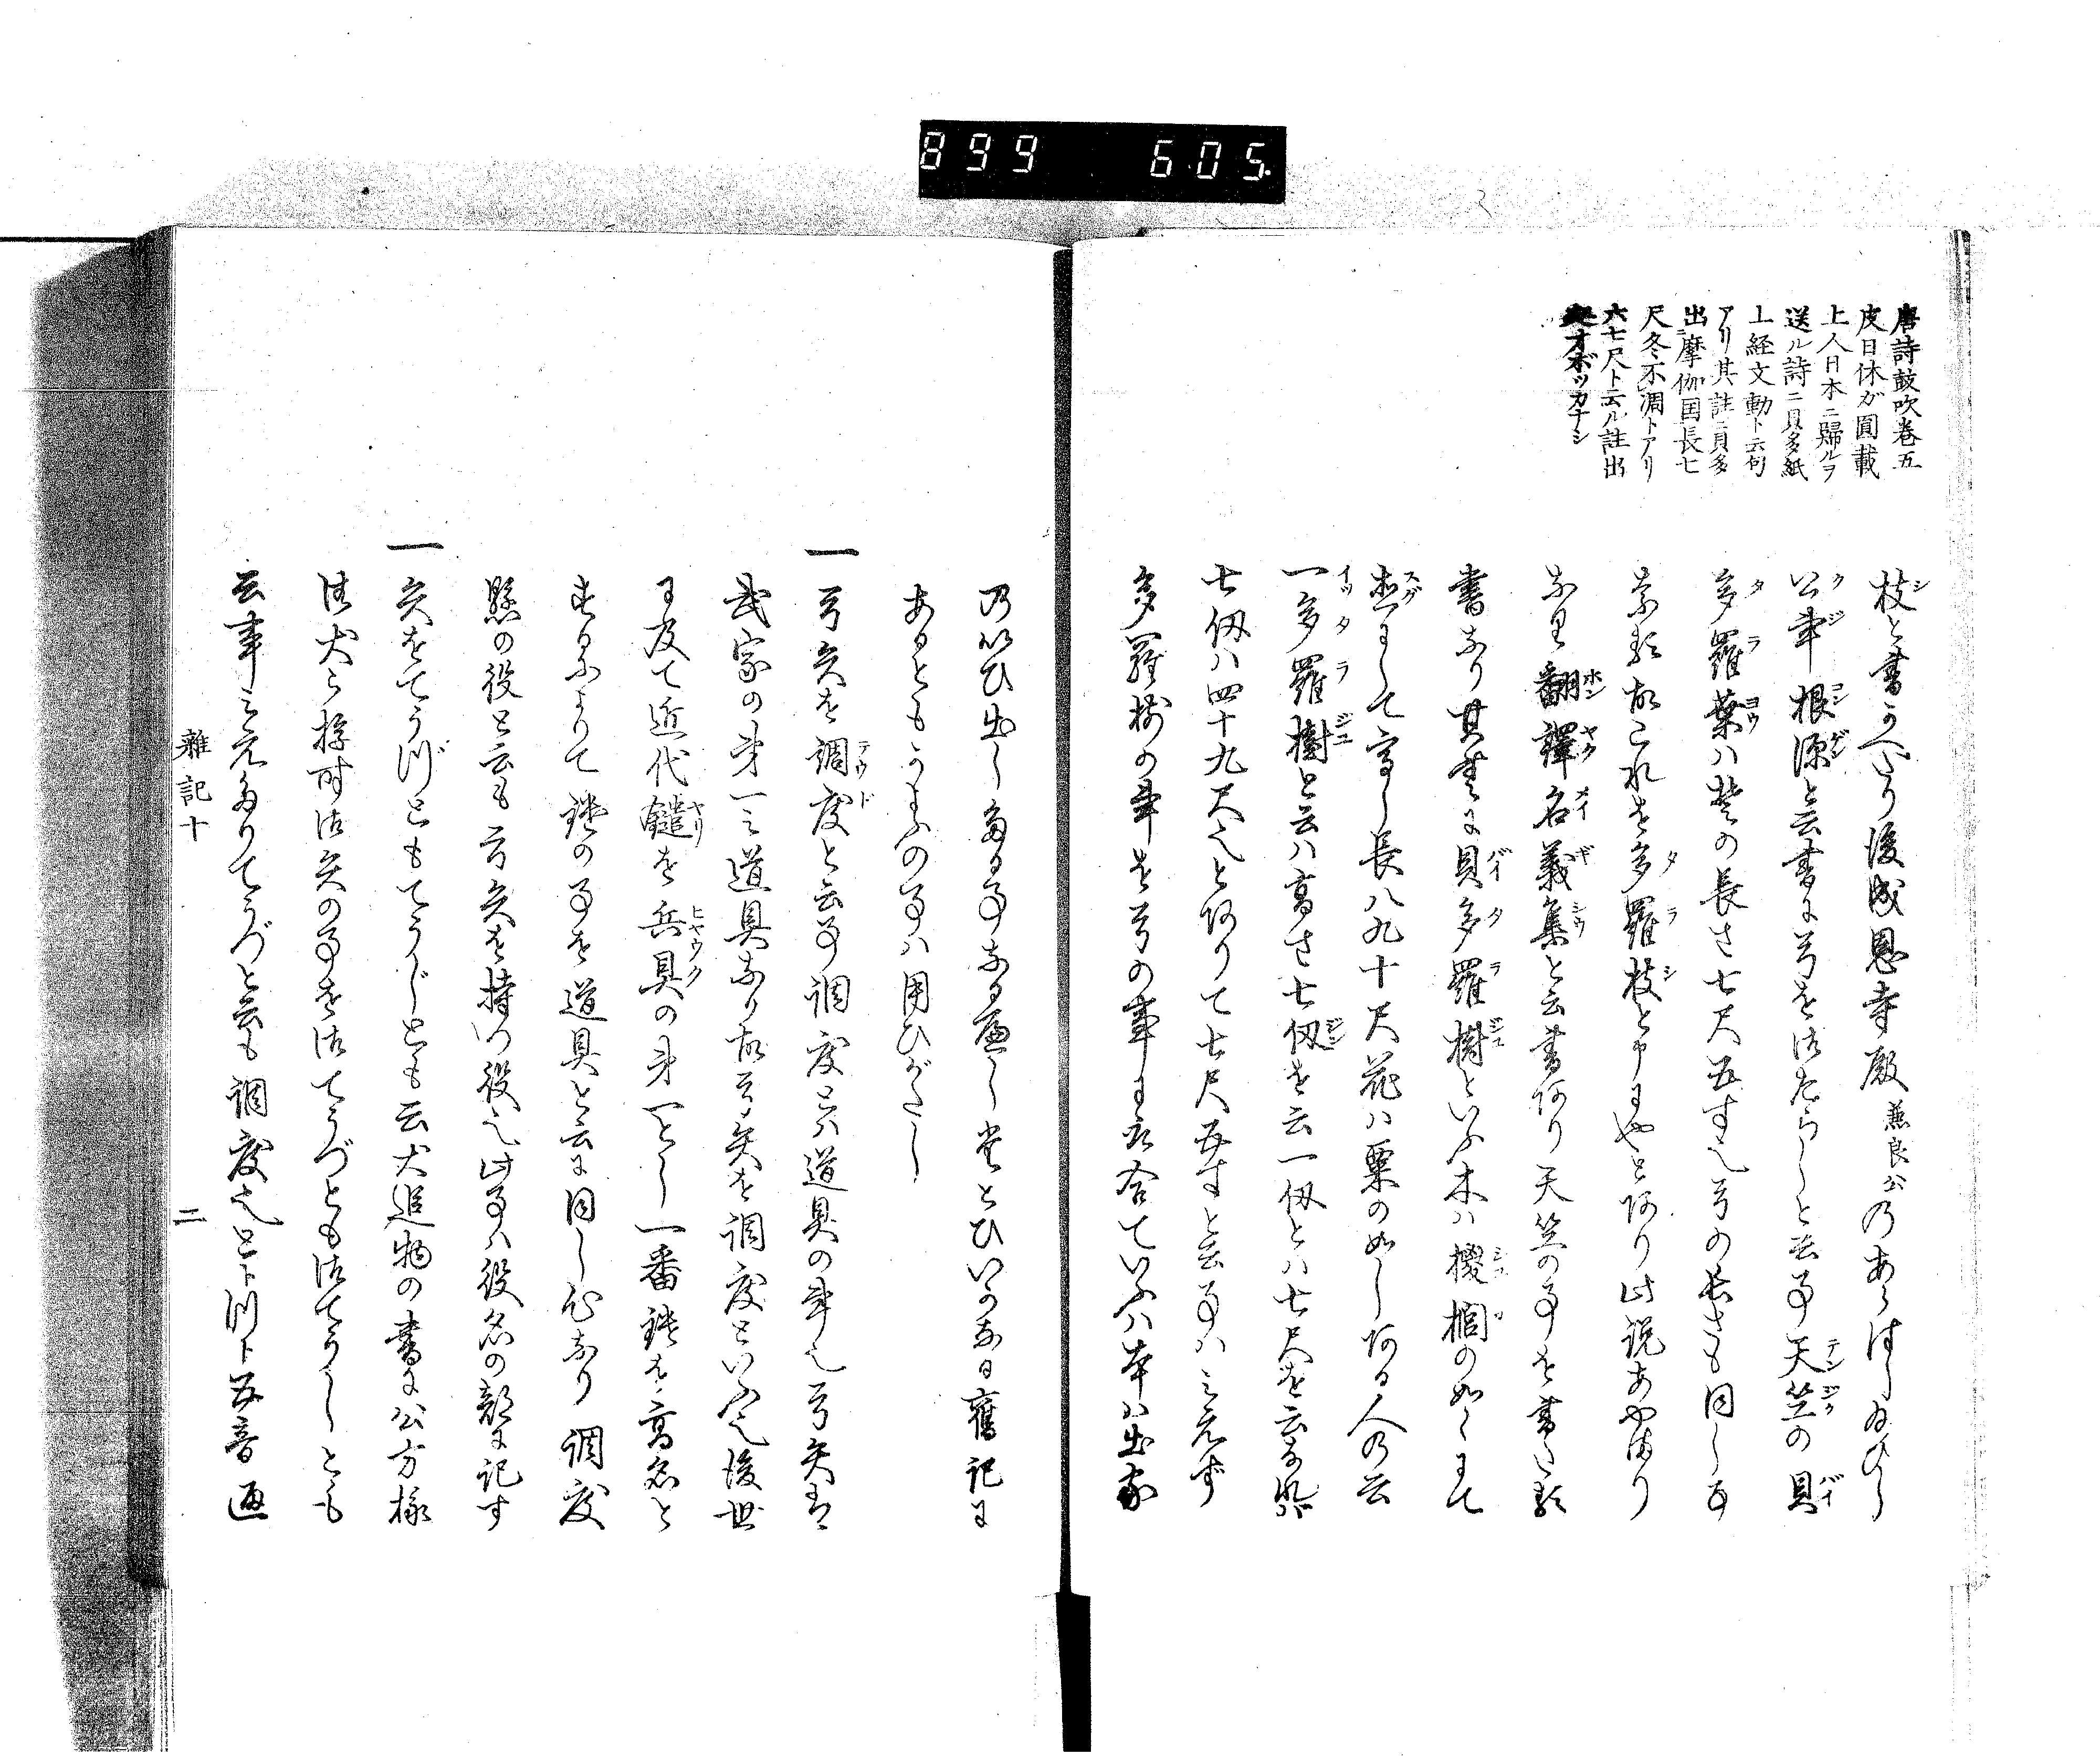 899 605.
唐詩鼓吹巻五
皮日休ガ圓載
上人日本ニ歸ルヲ
送ル詩ニ貝多紙
上経文動ト云句
アリ其註ニ貝多
出摩伽国長七
尺冬不凋トアリ
六七尺ト云ル註出
オボツカナシ
枝と書うへたり後成恩寺殿兼良公乃あらはし給ひし
公事根源と云書に弓を御たらしと云事天竺の貝
多羅葉ハ其の長さ七尺五寸也弓の長さも同し
故これを多羅枝と申にやとあり此説あやまり
なり翻譯名義集と云書あり天竺の事を書たる
書なり其書に貝多羅樹といふ木ハ椶櫚の如くにて
直にして高し長八九十尺花ハ粟の如しある人の云
一多羅樹と云ハ高さ七仭を云一仭とハ七尺を云なれバ
七仭ハ四十九尺也とありて七尺五寸と云事ハみえず
多羅樹の事を弓の事に取合ていふハ本ハ出家
乃いひ出し多る事なる
あるともうけふの事ハ用ひがたし
一 弓矢を調度と云事調度とハ道具の事也弓矢ハ
武家の第一の道具なり故弓矢を調度といふ也後世
に及て近代鑓を兵具の第一とし一番鎗を高名と
するによりて鎗の事を道具と云に同し心なり調度
懸の役と云も弓矢を持つ役也此事ハ役名の部に記す
一 矢をてうづともてうどとも云犬追物の書に公方様
御犬被遊時御矢の事を御てうづとも御てうどとも
云事みえたりてうづと云も調度也とト川ト五音通
雜記十
二